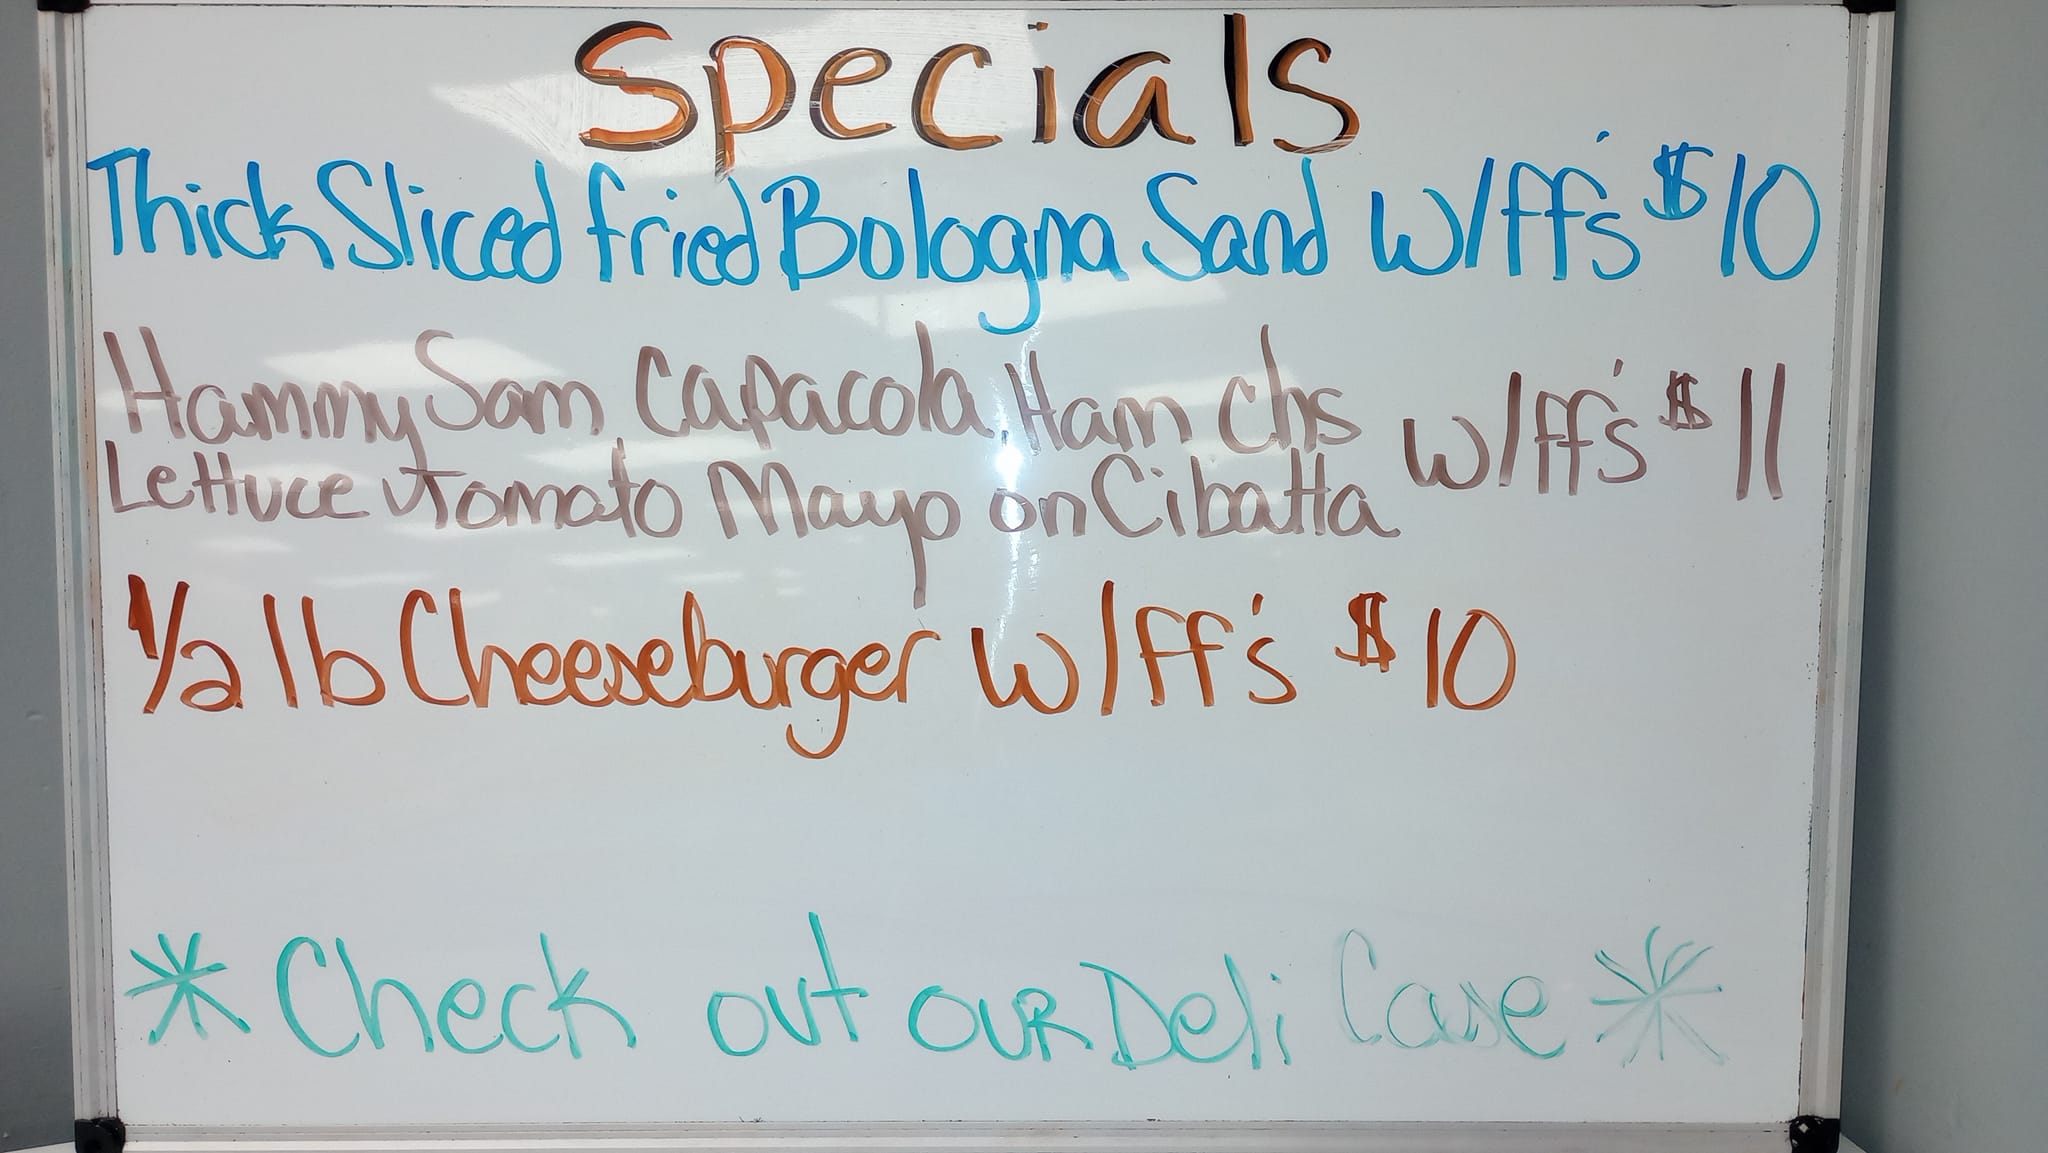 Specials
Thick Sliced fried Bologna Sand W/ff's $10
Hammy Sam Capacola, Ham Chs
Lettuce Tomato Mayo on Cibatta W/ff's $11
1/2 lb Cheeseburger W/ff's $10
* Check out our Deli Case *